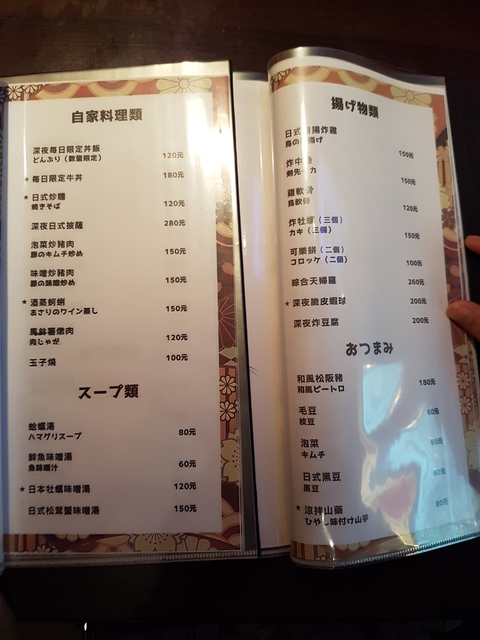 自家料理類
深夜每日限定丼飯 120元
どんぶり（数量限定）
★ 每日限定牛丼 180元
★ 日式炒麵 120元
焼きそば
深夜日式披薩 280元
泡菜炒豬肉 150元
豚のキムチ炒め
味噌炒豬肉 150元
豚の味噌炒め
★ 酒蒸蛤蜊 150元
あさりのワイン蒸し
馬鈴薯燉肉 120元
肉じゃが
玉子燒 100元
スープ類
蛤蠣湯 80元
ハマグリスープ
鮮魚味噌湯 60元
魚味噌汁
★ 日本牡蠣味噌湯 120元
日式松茸蟹味噌湯 150元
揚げ物類
日式 揚炸雞 150元
鳥の 揚げ
炸中卷 150元
剣先イカ
雞軟骨 120元
鳥軟骨
炸牡蠣（三個） 150元
カキ（三個）
可樂餅（二個） 100元
コロッケ（二個）
綜合天婦羅 260元
★ 深夜脆皮蝦球 200元
深夜炸豆腐 200元
おつまみ
和風松阪豬 180元
和風ピートロ
毛豆 60元
枝豆
泡菜 60元
キムチ
日式黑豆 60元
黒豆
★ 涼拌山藥 80元
ひやし味付け山芋